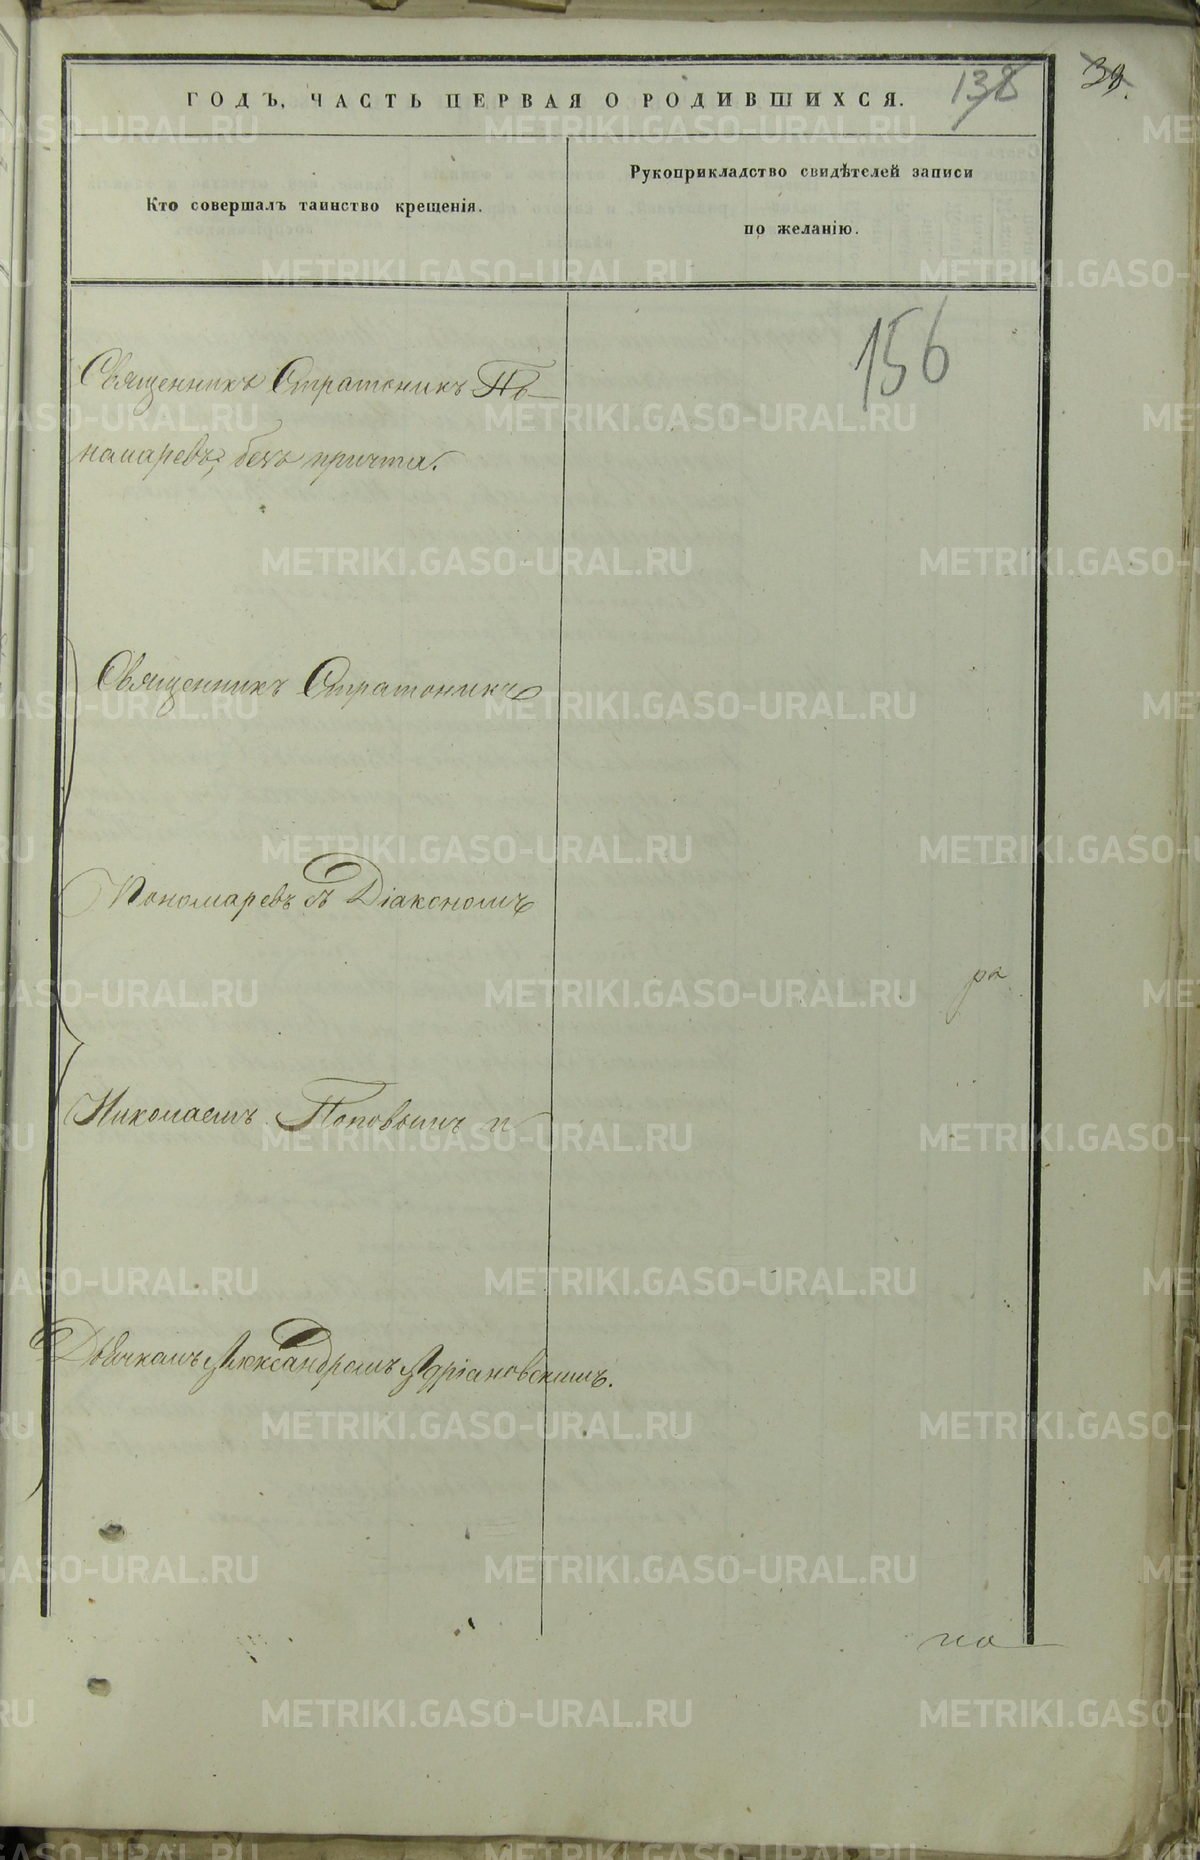 ГОДЪ, ЧАСТЬ ПЕРВАЯ О РОДИВШИХСЯ.
138
39.
Кто совершалъ таинство крещенія.
Рукоприкладство свидѣтелей записи
по желанію.
156
Священникъ Стратоникъ По-
намаревъ, безъ причта.
Священникъ Стратоникъ
Пономаревъ съ Діакономъ
ра
Николаемъ Поповымъ и
Дьячкомъ Александромъ Адріановскимъ.
по
METRIKI.GASO-URAL.RU